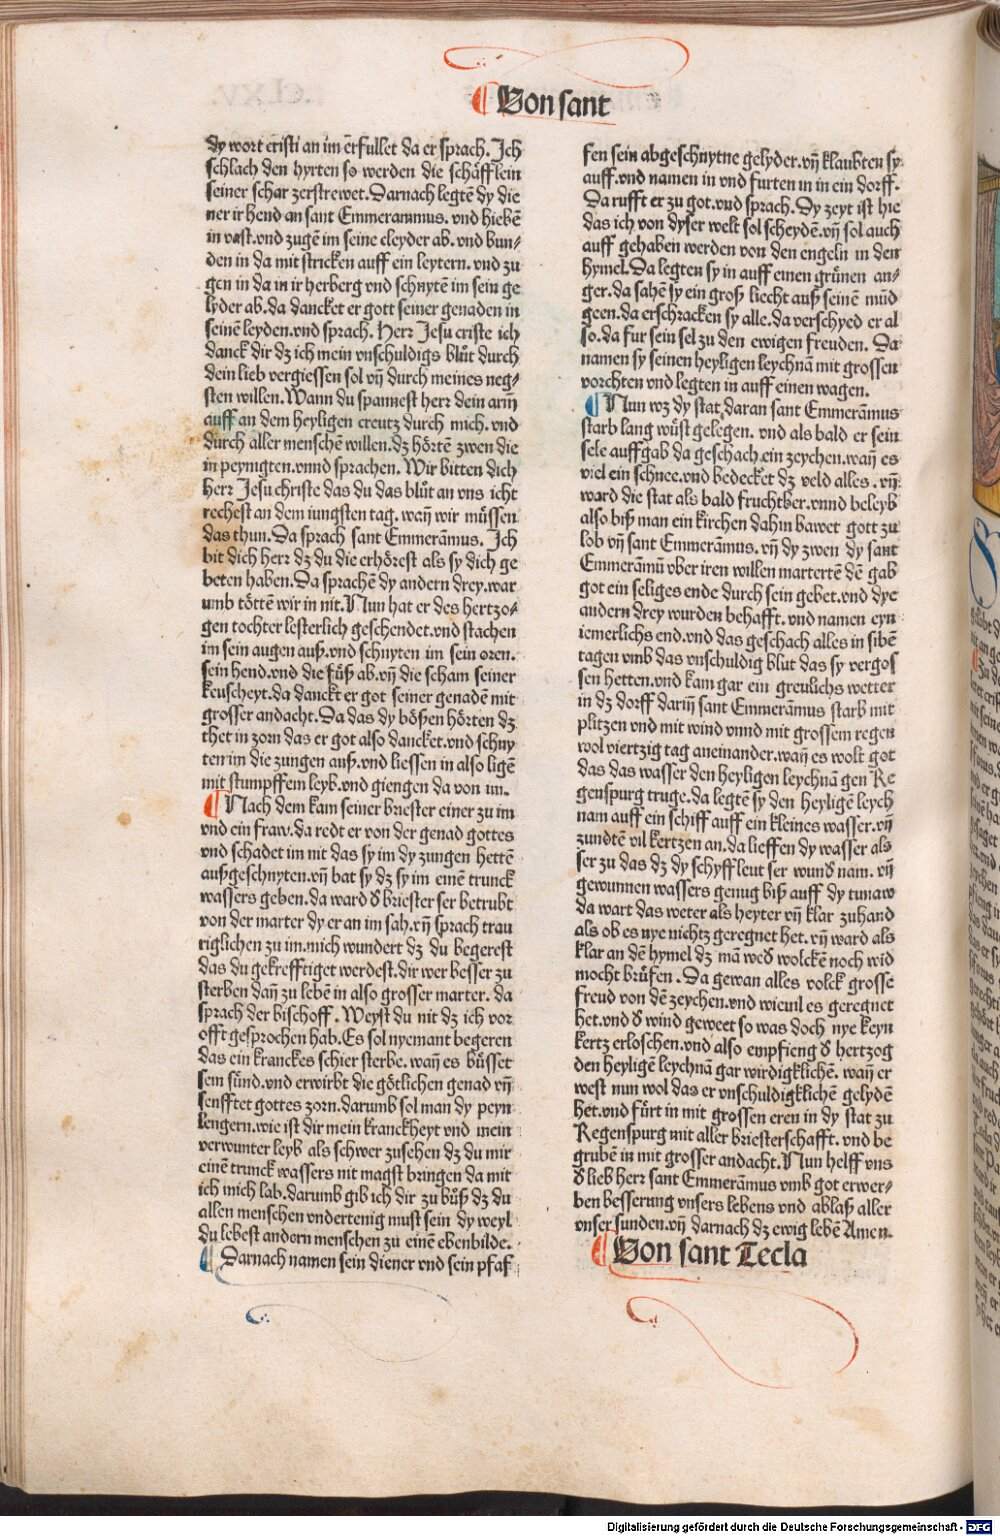 ¶ Von sant
dy wort cristi an im erfullet da er sprach. Ich
schlach den hyrten so werden die schäfflein
seiner schar zerstrewet. Darnach legtē dy die
ner ir hend an sant Emmerammus. vnd hiebē
in vast. vnd zugē im seine cleyder ab. vnd bun-
den in da mit stricken auff ein leytern. vnd zu
gen in da in ir herberg vnd schnytē im sein ge
lyder ab. da dancket er gott seiner genaden in
seinē leyden. vnd sprach. Herr Jesu criste ich
danck dir dz ich mein vnschuldigs blůt durch
dein lieb vergiessen sol vn̄ durch meines neg-
sten willen. Wann du spannest herr dein arm̄
auff an dem heyligen creutz durch mich. vnd
durch aller menschē willen. dz hörtē zwen die
in peynigten. vnnd sprachen. Wir bitten dich
herr Jesu christe das du das blůt an vns icht
rechest an dem iungsten tag. wan̄ wir müssen
das thun. Da sprach sant Emmerāmus. Ich
bit dich herr dz du die erhörest als sy dich ge
beten haben. Da sprachē dy andern drey. war
umb töttē wir in nit. Nun hat er des hertzo-
gen tochter lesterlich geschendet. vnd stachen
im sein augen auß. vnd schnyten im sein oren.
sein hend. vnd die füß ab. vn̄ die scham seiner
keuscheyt. da danckt er got seiner genadē mit
grosser andacht. Da das dy bößen hörten dz
thet in zorn das er got also dancket. vnd schny
ten im die zungen auß. vnd liessen in also ligē
mit stumpffem leyb. vnd giengen da von im.
¶ Nach dem kam seiner briester einer zu im
vnd ein fraw. da redt er von der genad gottes
vnd schadet im nit das sy im dy zungen hettē
außgeschnyten. vn̄ bat sy dz sy im einē trunck
wassers geben. da ward d̄ briester ser betrubt
von der marter dy er an im sah. vn̄ sprach trau
riglichen zu im. mich wundert dz du begerest
das du gekrefftiget werdest. dir wer besser zu
sterben dan̄ zu lebē in also grosser marter. da
sprach der bischoff. Weyst du nit dz ich vor
offt gesprochen hab. Es sol nyemant begeren
das ein kranckes schier sterbe. wan̄ es büsset
sem sünd. vnd erwirbt die götlichen genad vn̄
senfftet gottes zorn. darumb sol man dy peyn
lengern. wie ist dir mein kranckheyt vnd mein
verwunter leyb als schwer zusehen dz du mir
einē trunck wassers nit magst bringen da mit
ich mich lab. darumb gib ich dir zu bůß dz du
allen menschen vndertenig must sein dy weyl
du lebest andern menschen zu einē ebenbilde.
¶ Darnach namen sein diener vnd sein pfaf
fen sein abgeschnytne gelyder. vn̄ klaubten sy
auff. vnd namen in vnd furten in in ein dorff.
Da rufft er zu got. vnd sprach. Dy zeyt ist hie
das ich von dyser welt sol scheydē. vn̄ sol auch
auff gehaben werden von den engeln in den
hymel. Da legten sy in auff einen grünen an-
ger. da sahē sy ein groß liecht auß seinē mūd
geen. da erschracken sy alle. da verschyed er al
so. da fur sein sel zu den ewigen freuden. Da
namen sy seinen heyligen leychnā mit grossen
vorchten vnd legten in auff einen wagen.
¶ Nun wz dy stat daran sant Emmerāmus
starb lang wüst gelegen. vnd als bald er sein
sele auffgab da geschach ein zeychen. wan̄ es
viel ein schnee. vnd bedecket dz veld alles. vn̄
ward die stat als bald fruchtber. vnnd beleyb
also biß man ein kirchen dahin bawet gott zu
lob vn̄ sant Emmerāmus. vn̄ dy zwen dy sant
Emmerāmū vber iren willen martertē dē gab
got ein seliges ende durch sein gebet. vnd dye
andern drey wurden behafft. vnd namen eyn
iemerlichs end. vnd das geschach alles in sibē
tagen vmb das vnschuldig blut das sy vergos
sen hetten. vnd kam gar ein greulichs wetter
in dz dorff darin̄ sant Emmerāmus starb mit
plitzen vnd mit wind vnnd mit grossem regen
wol viertzig tag aneinander. wan̄ es wolt got
das das wasser den heyligen leychnā gen Re
genspurg truge. da legtē sy den heyligē leych
nam auff ein schiff auff ein kleines wasser. vn̄
zundtē vil kertzen an. da lieffen dy wasser als
ser zu das dz dy schyffleut ser wund nam. vn̄
gewunnen wassers genug biß auff dy tunaw
da wart das weter als heyter vn̄ klar zuhand
als ob es nye nichtz geregnet het. vn̄ ward als
klar an dē hymel dz mā wed̄ wolckē noch wid
mocht brüfen. Da gewan alles volck grosse
freud von dē zeychen. vnd wieuil es geregnet
het. vnd d̄ wind geweet so was doch nye keyn
kertz erloschen. vnd also empfieng d̄ hertzog
den heyligē leychnā gar wirdigklichē. wan̄ er
west nun wol das er vnschuldigklichē gelydē
het. vnd fürt in mit grossen eren in dy stat zu
Regenspurg mit aller briesterschafft. vnd be
grubē in mit grosser andacht. Nun helff vns
d̄ lieb herr sant Emmerāmus vmb got erwer-
ben besserung vnsers lebens vnd ablaß aller
vnser sunden. vn̄ darnach dz ewig lebē Amen.
¶ Von sant Tecla
Digitalisierung gefördert durch die Deutsche Forschungsgemeinschaft - DFG